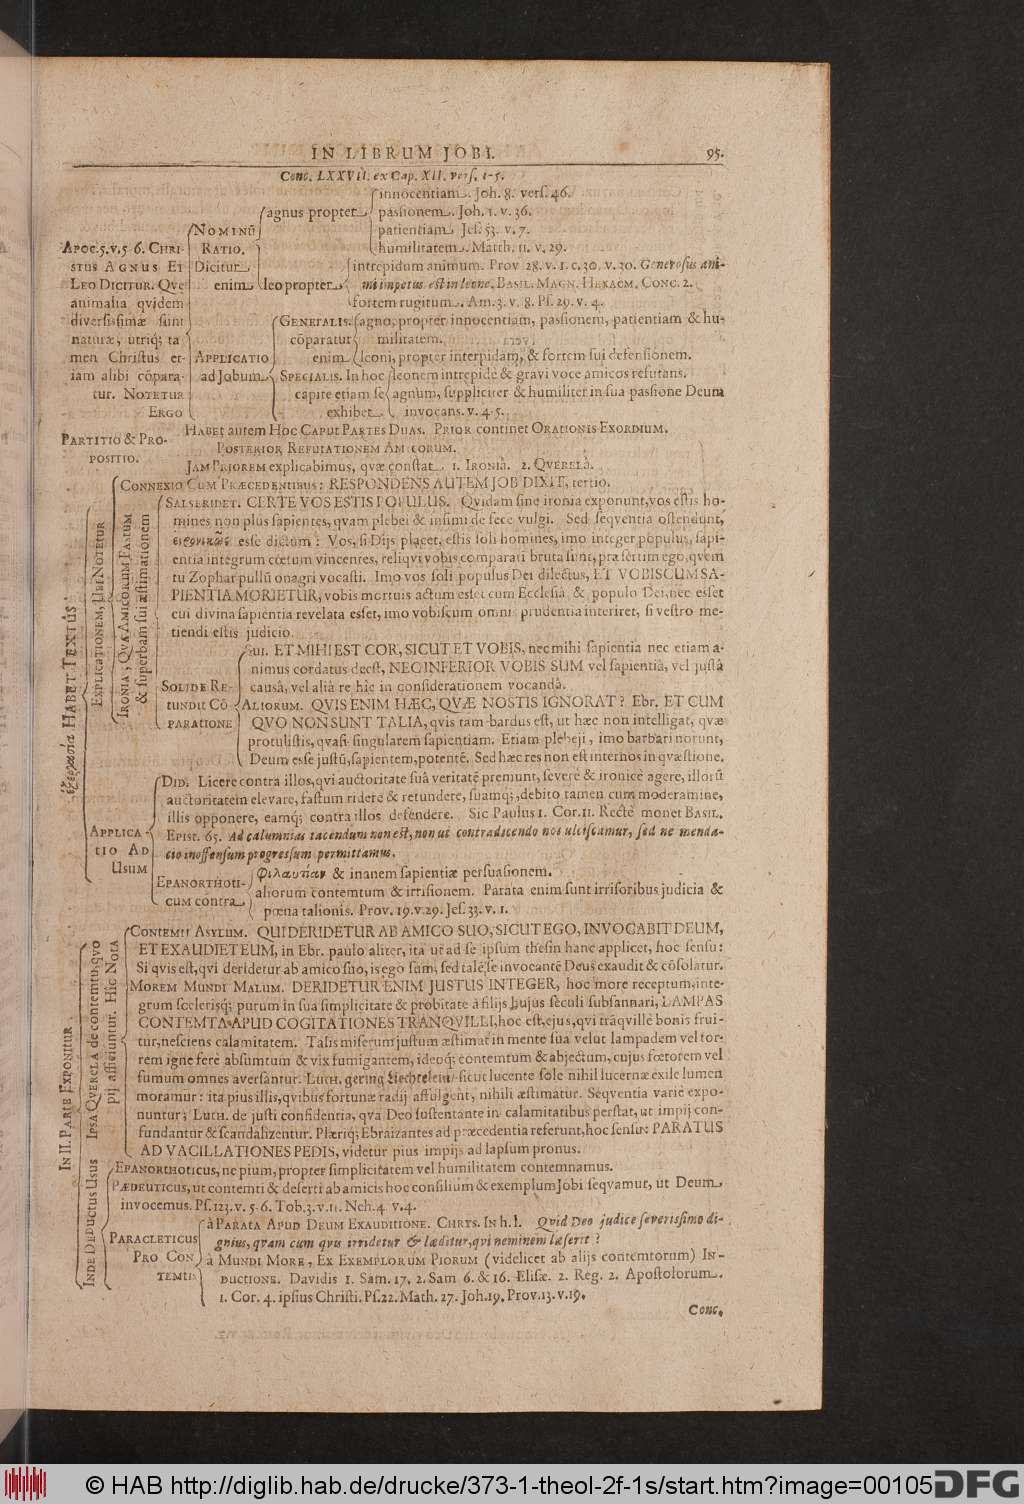 IN LIBRUM JOBI. 95.
Conc. LXXVII. ex Cap. XII. vers. 1-5.
Apoc. 5. v. 5 6. Chri-
stus Agnus Et
Leo Dicitur. Qve
animalia qvidem
diversissimæ sunt
naturæ, utriq; ta
men Christus et-
iam alibi cōpara-
tur. Notetur
Ergo
Nominū
Ratio.
Dicitur
enim
agnus propter
innocentiam. Joh. 8. vers. 46.
passionem. Joh. 1. v. 36.
patientiam Jes. 53. v. 7.
humilitatem. Matth. 11. v. 29.
leo propter
intrepidum animum. Prov 28. v. 1. c. 30. v. 30. Generosus ani-
mi impetus est in leone. Basil. Magn. Hexaem. Conc. 2.
fortem rugitum. Am. 3. v. 8. Ps. 29. v. 4.
Applicatio
ad Jobum
Generalis.
cōparatur
enim
agno, propter innocentiam, passionem, patientiam & hu-
militatem.
leoni, propter interpidam, & fortem sui defensionem.
Specialis. In hoc
capite etiam se
exhibet
leonem intrepidè & gravi voce amicos refutans.
agnum, suppliciter & humiliter in sua passione Deum
invocans. v. 4. 5.
Partitio & Pro-
positio.
Habet autem Hoc Caput Partes Duas. Prior continet Orationis Exordium.
Posterior Refutationem Amicorum.
Jam Priorem explicabimus, quæ constat 1. Ironiâ. 2. Qverelâ.
ἐξεργασία Habet Textûs
Explicationem, Ubi Notetur
Ironia; Qva Amicorum Fastum
& superbam sui æstimationem
Connexio Cum Præcedentibus: RESPONDENS AUTEM JOB DIXIT, tertio.
Salse ridet. CERTE VOS ESTIS POPULUS. Qvidam sine ironia exponunt, vos estis ho-
mines non plus sapientes, qvam plebei & infimi de fece vulgi. Sed seqventia ostendunt,
εἰρωνικῶς esse dictum: Vos, si Dijs placet, estis soli homines, imo integer populus, sapi-
entia integrum cœtum vincentes, reliqvi vobis comparati bruta sunt, præsertim ego, qvem
tu Zophar pullū onagri vocasti. Imo vos soli populus Dei dilectus, ET VOBISCUM SA-
PIENTIA MORIETUR, vobis mortuis actum esset cum Ecclesiâ & populo Dei, nec esset
cui divina sapientia revelata esset, imo vobiscum omnis prudentia interiret, si vestro me-
tiendi estis judicio.
Solide Re-
tundit Cō
paratione
Sui. ET MIHI EST COR, SICUT ET VOBIS, nec mihi sapientia nec etiam a-
nimus cordatus deest, NEC INFERIOR VOBIS SUM vel sapientiâ, vel justâ
causâ, vel aliâ re hîc in considerationem vocandâ.
Aliorum. QVIS ENIM HÆC, QVÆ NOSTIS IGNORAT? Ebr. ET CUM
QVO NON SUNT TALIA, qvis tam bardus est, ut hæc non intelligat, qvæ
protulistis, qvasi singularem sapientiam. Etiam plebeji, imo barbari norunt,
Deum esse justū, sapientem, potentē. Sed hæc res non est inter nos in qvæstione.
Applica
tio Ad
Usum
Did: Licere contra illos, qvi auctoritate suâ veritatē premunt, severè & ironicè agere, illorū
auctoritatem elevare, fastum ridere & retundere, suamq;, debito tamen cum moderamine,
illis opponere, eamq; contra illos defendere. Sic Paulus 1. Cor. 11. Rectè monet Basil.
Epist. 65. Ad calumnias tacendum non est, non ut contradicendo nos ulciscamur, sed ne menda-
cio inoffensum progressum permittamus.
Epanorthoti-
cum contra
Φιλαυτίαν & inanem sapientiæ persuasionem.
aliorum contemtum & irrisionem. Parata enim sunt irrisoribus judicia &
pœna talionis. Prov. 19. v. 29. Jes. 33. v. 1.
In II. Parte Exponitur
Ipsa Qverela de contemtu, qvo
pij afficiuntur. Hic Nota
Contemti Asylum. QUI DERIDETUR AB AMICO SUO, SICUT EGO, INVOCABIT DEUM,
ET EXAUDIET EUM, in Ebr. paulo aliter, ita ut ad se ipsum thesin hanc applicet, hoc sensu:
Si qvis est, qvi deridetur ab amico suo, is ego sum, sed talē se invocantē Deus exaudit & cōsolatur.
Morem Mundi Malum. DERIDETUR ENIM JUSTUS INTEGER, hoc more receptum, inte-
grum scelerisq; purum in sua simplicitate & probitate à filijs hujus seculi subsannari, LAMPAS
CONTEMTA APUD COGITATIONES TRANQVILLI, hoc est, ejus, qvi trāqvillè bonis frui-
tur, nesciens calamitatem. Talis miserum justum æstimat in mente sua velut lampadem vel tor-
rem igne ferè absumtum & vix fumigantem, ideoq; contemtum & abjectum, cujus fœtorem vel
fumum omnes aversantur. Luth. gering Liechtelein/ sicut lucente sole nihil lucernæ exile lumen
moramur: ita pius illis, qvibus fortunæ radij affulgent, nihili æstimatur. Seqventia variè expo-
nuntur; Luth. de justi confidentia, qva Deo sustentante in calamitatibus perstat, ut impij con-
fundantur & scandalizentur. Plæriq; Ebraizantes ad præcedentia referunt, hoc sensu: PARATUS
AD VACILLATIONES PEDIS, videtur pius impijs ad lapsum pronus.
Inde Deductus Usus
Epanorthoticus, ne pium, propter simplicitatem vel humilitatem contemnamus.
Pædeuticus, ut contemti & deserti ab amicis hoc consilium & exemplum Jobi seqvamur, ut Deum
invocemus. Ps. 123. v. 5. 6. Tob. 3. v. 11. Neh. 4 v. 4.
Paracleticus
Pro Con
temtis
à Parata Apud Deum Exauditione. Chrys. In h. l. Quid Deo judice severissimo di-
gnius, qvam cum qvis irridetur & læditur, qvi neminem læserit?
à Mundi More, Ex Exemplorum Piorum (videlicet ab alijs contemtorum) In-
ductione. Davidis 1. Sam. 17. 2. Sam 6. & 16. Elisæ. 2. Reg. 2. Apostolorum.
1. Cor. 4. ipsius Christi. Ps. 22. Math. 27. Joh. 19. Prov. 13. v. 19.
Conc.
© HAB http://diglib.hab.de/drucke/373-1-theol-2f-1s/start.htm?image=00105
DFG